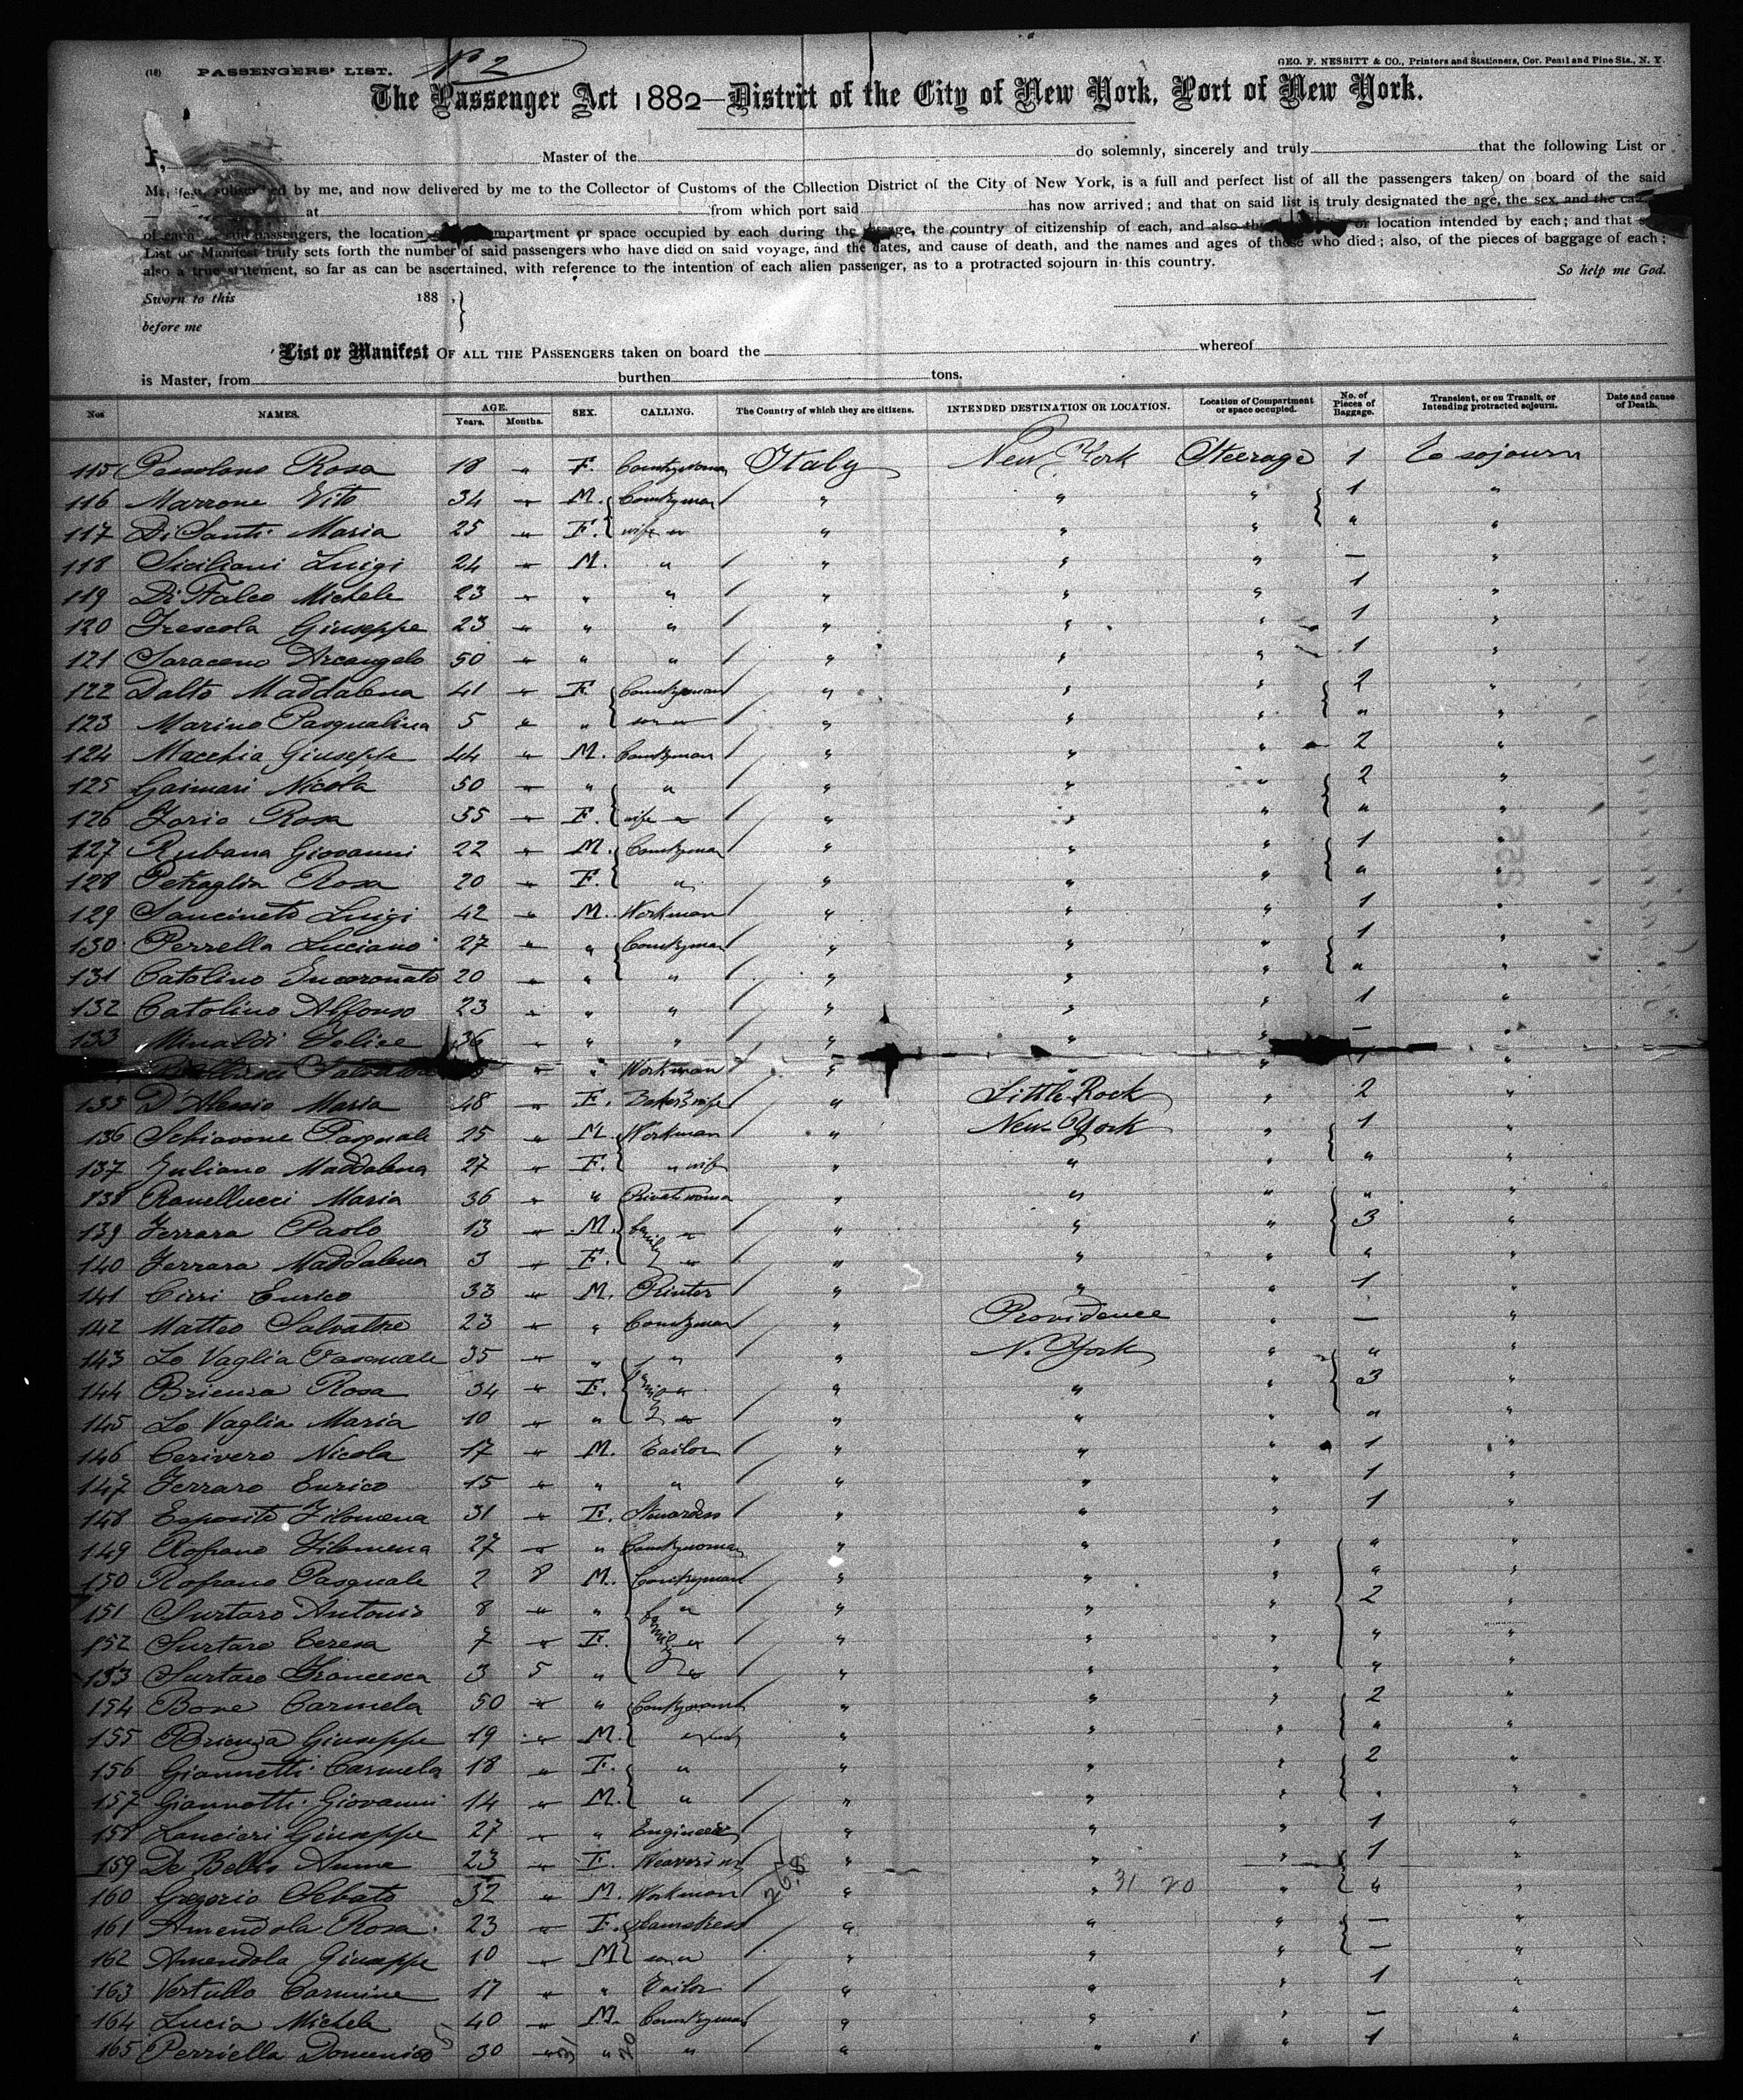 (18) PASSENGERS' LIST. No 2 GEO. F. NESBITT & CO., Printers and Stationers, Cor. Pearl and Pine Sts., N. Y.
The Passenger Act 1882—District of the City of New York, Port of New York.
I, Master of the do solemnly, sincerely and truly that the following List or
by me, and now delivered by me to the Collector of Customs of the Collection District of the City of New York, is a full and perfect list of all the passengers taken on board of the said
at from which port said has now arrived; and that on said list is truly designated the age, the sex, and the
of each passengers, the location occupied by each during the the country of citizenship of each, and also or location intended by each; and that
List or Manifest truly sets forth the number of said passengers who have died on said voyage, and the dates, and cause of death, and the names and ages of those who died; also, of the pieces of baggage of each;
also a true statement, so far as can be ascertained, with reference to the intention of each alien passenger, as to a protracted sojourn in this country. So help me God.
Sworn to this 188 ,
before me
List or Manifest OF ALL THE PASSENGERS taken on board the whereof
is Master, from burthen tons.
Nos NAMES. AGE. Years. Months. SEX. CALLING. The Country of which they are citizens. INTENDED DESTINATION OR LOCATION. Location of Compartment or space occupied. No. of Pieces of Baggage. Transient, or on Transit, or Intending protracted sojourn. Date and cause of Death.
115 Rosa 18 " F. Countrywoman Italy New York Steerage 1 To sojourn
116 Marrone Vito 34 " M. Countryman " " " 1 "
117 Di Santi Maria 25 " F. wife " " " " " "
118 Siciliani Luigi 24 " M. " " " " — "
119 Di Falco Michele 23 " " " " " " 1 "
120 Frescola Giuseppe 23 " " " " " " 1 "
121 Saraceno Arcangelo 50 " " " " " " 1 "
122 Dalto Maddalena 41 " F. Countrywoman " " " 2 "
123 Marino Pasqualina 5 " " " " " " "
124 Macchia Giuseppe 44 " M. Countryman " " " 2 "
125 Gaimari Nicola 50 " " " " " " 2 "
126 Iorio Rosa 35 " F. wife " " " " " "
127 Rubana Giovanni 22 " M. Countryman " " " 1 "
128 Petraglia Rosa 20 " F. " " " " " "
129 Sancineto Luigi 42 " M. Workman " " " 1 "
130 Perrella Luciano 27 " " Countryman " " " 1 "
131 Catolino Incoronato 20 " " " " " " " "
132 Catolino Alfonso 23 " " " " " " 1 "
133 Minaldi Felice 36 " " " " " " — "
" " Workman " " " 1 "
135 D'Alessio Maria 48 " F. Baker's wife " Little Rock " 2 "
136 Schiavone Pasquale 25 " M. Workman " New York " 1 "
137 Juliano Maddalena 27 " F. " wife " " " " "
138 Ranellucci Maria 36 " " " " " " "
139 Ferrara Paolo 13 " M. family " " " " 3 "
140 Ferrara Maddalena 3 " F. " " " " " "
141 Cirri Enrico 33 " M. Printer " " " 1 "
142 Matteo Salvatore 23 " " Countryman " Providence " — "
143 Lo Vaglia Pasquale 35 " " " " N. York " " "
144 Brienza Rosa 34 " F. family " " " " 3 "
145 Lo Vaglia Maria 10 " " " " " " " "
146 Cerivero Nicola 17 " M. Tailor " " " 1 "
147 Ferraro Enrico 15 " " " " " " 1 "
148 Esposito Filomena 31 " F. " " " 1 "
149 Rofrano Filomena 27 " " Countrywoman " " " " "
150 Rofrano Pasquale 2 8 M. Countryman " " " " "
151 Surtaro Antonio 8 " " " " " " 2 "
152 Surtaro Teresa 7 " F. family " " " " " "
153 Surtaro Francesca 3 5 " " " " " " "
154 Bove Carmela 50 " " Countrywoman " " " 2 "
155 Brienza Giuseppe 19 " M. " " " " " "
156 Giannotti Carmela 18 " F. " " " " 2 "
157 Giannotti Giovanni 14 " M. " " " " " "
158 Lancieri Giuseppe 27 " " Engineer " " " 1 "
159 De Bellis Anna 23 " F. " " " 1 "
160 Gregorio Sebato 32 " M. Workman " " 31 20 " " "
161 Amendola Rosa 23 " F. Seamstress " " " — "
162 Amendola Giuseppe 10 " M. son " " " " — "
163 Vertullo Carmine 17 " " Tailor " " " 1 "
164 Lucia Michele 40 " M. Countryman " " " — "
165 Perriella Domenico 30 " 31 " 20 " " " " 1 "